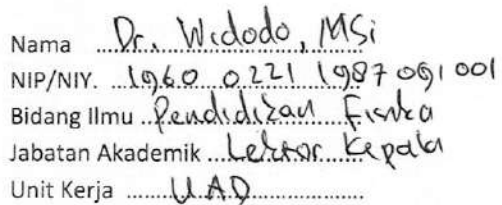 Nama Dr. Widodo, MSi
NIP/NIY. 1960 0221 1987 091 001
Bidang Ilmu Pendidikan Fisika
Jabatan Akademik Lektor Kepala
Unit Kerja UAD